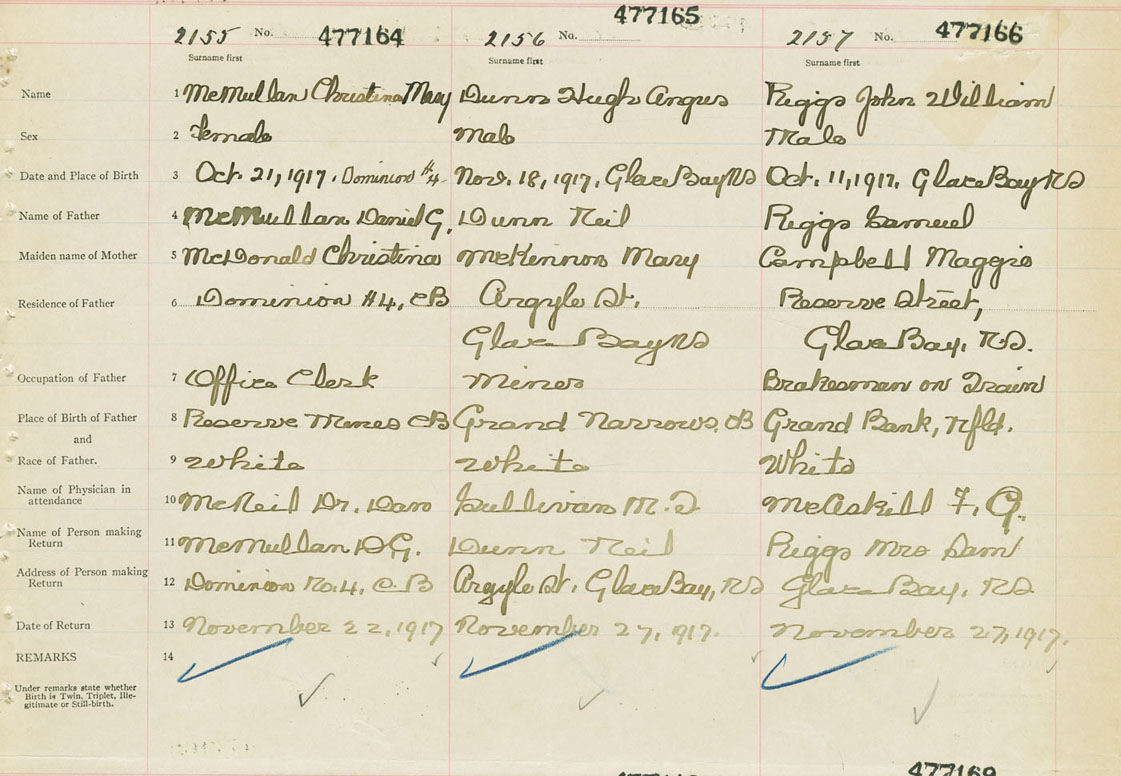 477165
2155 No. 477164 2156 No. 2157 No. 477166
Surname first Surname first Surname first
Name 1 McMullan Christina Mary Dunn Hugh Angus Riggs John William
Sex 2 Female Male Male
Date and Place of Birth 3 Oct. 21, 1917. Dominion #4 Nov. 18, 1917. Glace Bay NS Oct. 11, 1917. Glace Bay NS
Name of Father 4 McMullan Daniel G. Dunn Neil Riggs Samuel
Maiden name of Mother 5 McDonald Christina McKinnon Mary Campbell Maggie
Residence of Father 6 Dominion #4, CB Argyle St. Reserve Street,
Glace Bay NS Glace Bay, N.S.
Occupation of Father 7 Office Clerk Miner Brakesman on Train
Place of Birth of Father 8 Reserve Mines CB Grand Narrows, CB Grand Bank, Nfld.
and
Race of Father. 9 White White White
Name of Physician in
attendance 10 McNeil Dr. Dan Sullivan M. T McAskill F. A.
Name of Person making
Return 11 McMullan D G. Dunn Neil Riggs Mrs Sam
Address of Person making
Return 12 Dominion No. 4, C. B Argyle St. Glace Bay, NS Glace Bay, NS.
Date of Return 13 November 22, 1917 November 27, 1917. November 27, 1917.
REMARKS 14
Under remarks state whether
Birth is Twin, Triplet, Ille-
gitimate or Still-birth.
477169